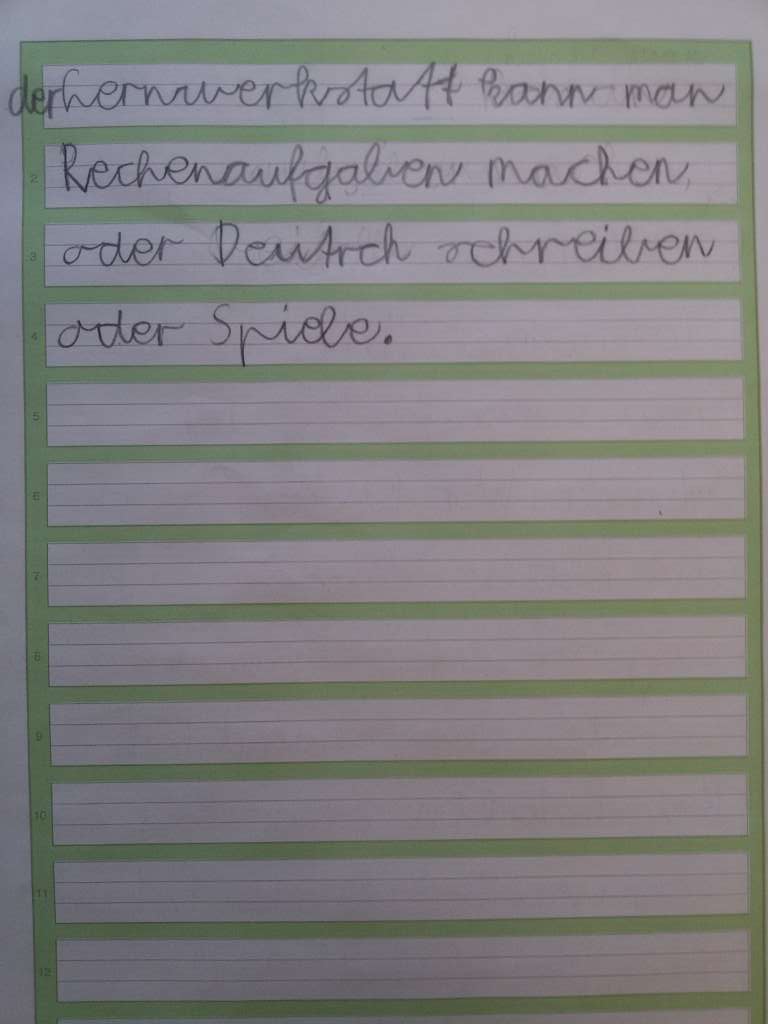 der hernwerkstatt kann man
2 Rechenaufgaben machen
3 oder Deutsch schreiben
4 oder Spiele.
5
6
7
8
9
10
11
12